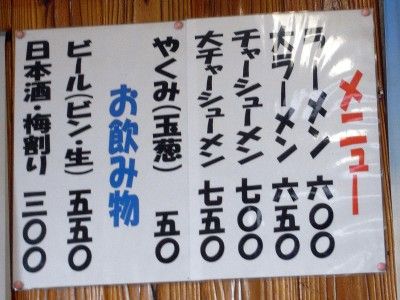 メニュー
ラーメン 六〇〇
大ラーメン 六五〇
チャーシューメン 七〇〇
大チャーシューメン 七五〇
やくみ(玉葱) 五〇
お飲み物
ビール(ビン・生) 五五〇
日本酒・梅割り 三〇〇